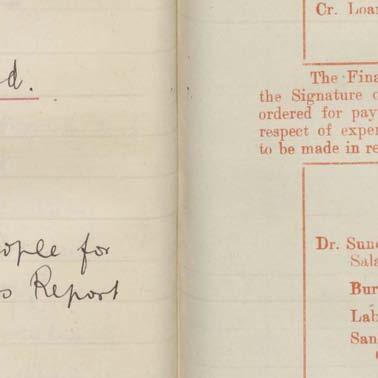 d.
ople for
s Report
Cr. Loan
The Fina
the Signature o
ordered for pay
respect of expen
to be made in re
Dr. Sund
Sala
Bur
Lab
San